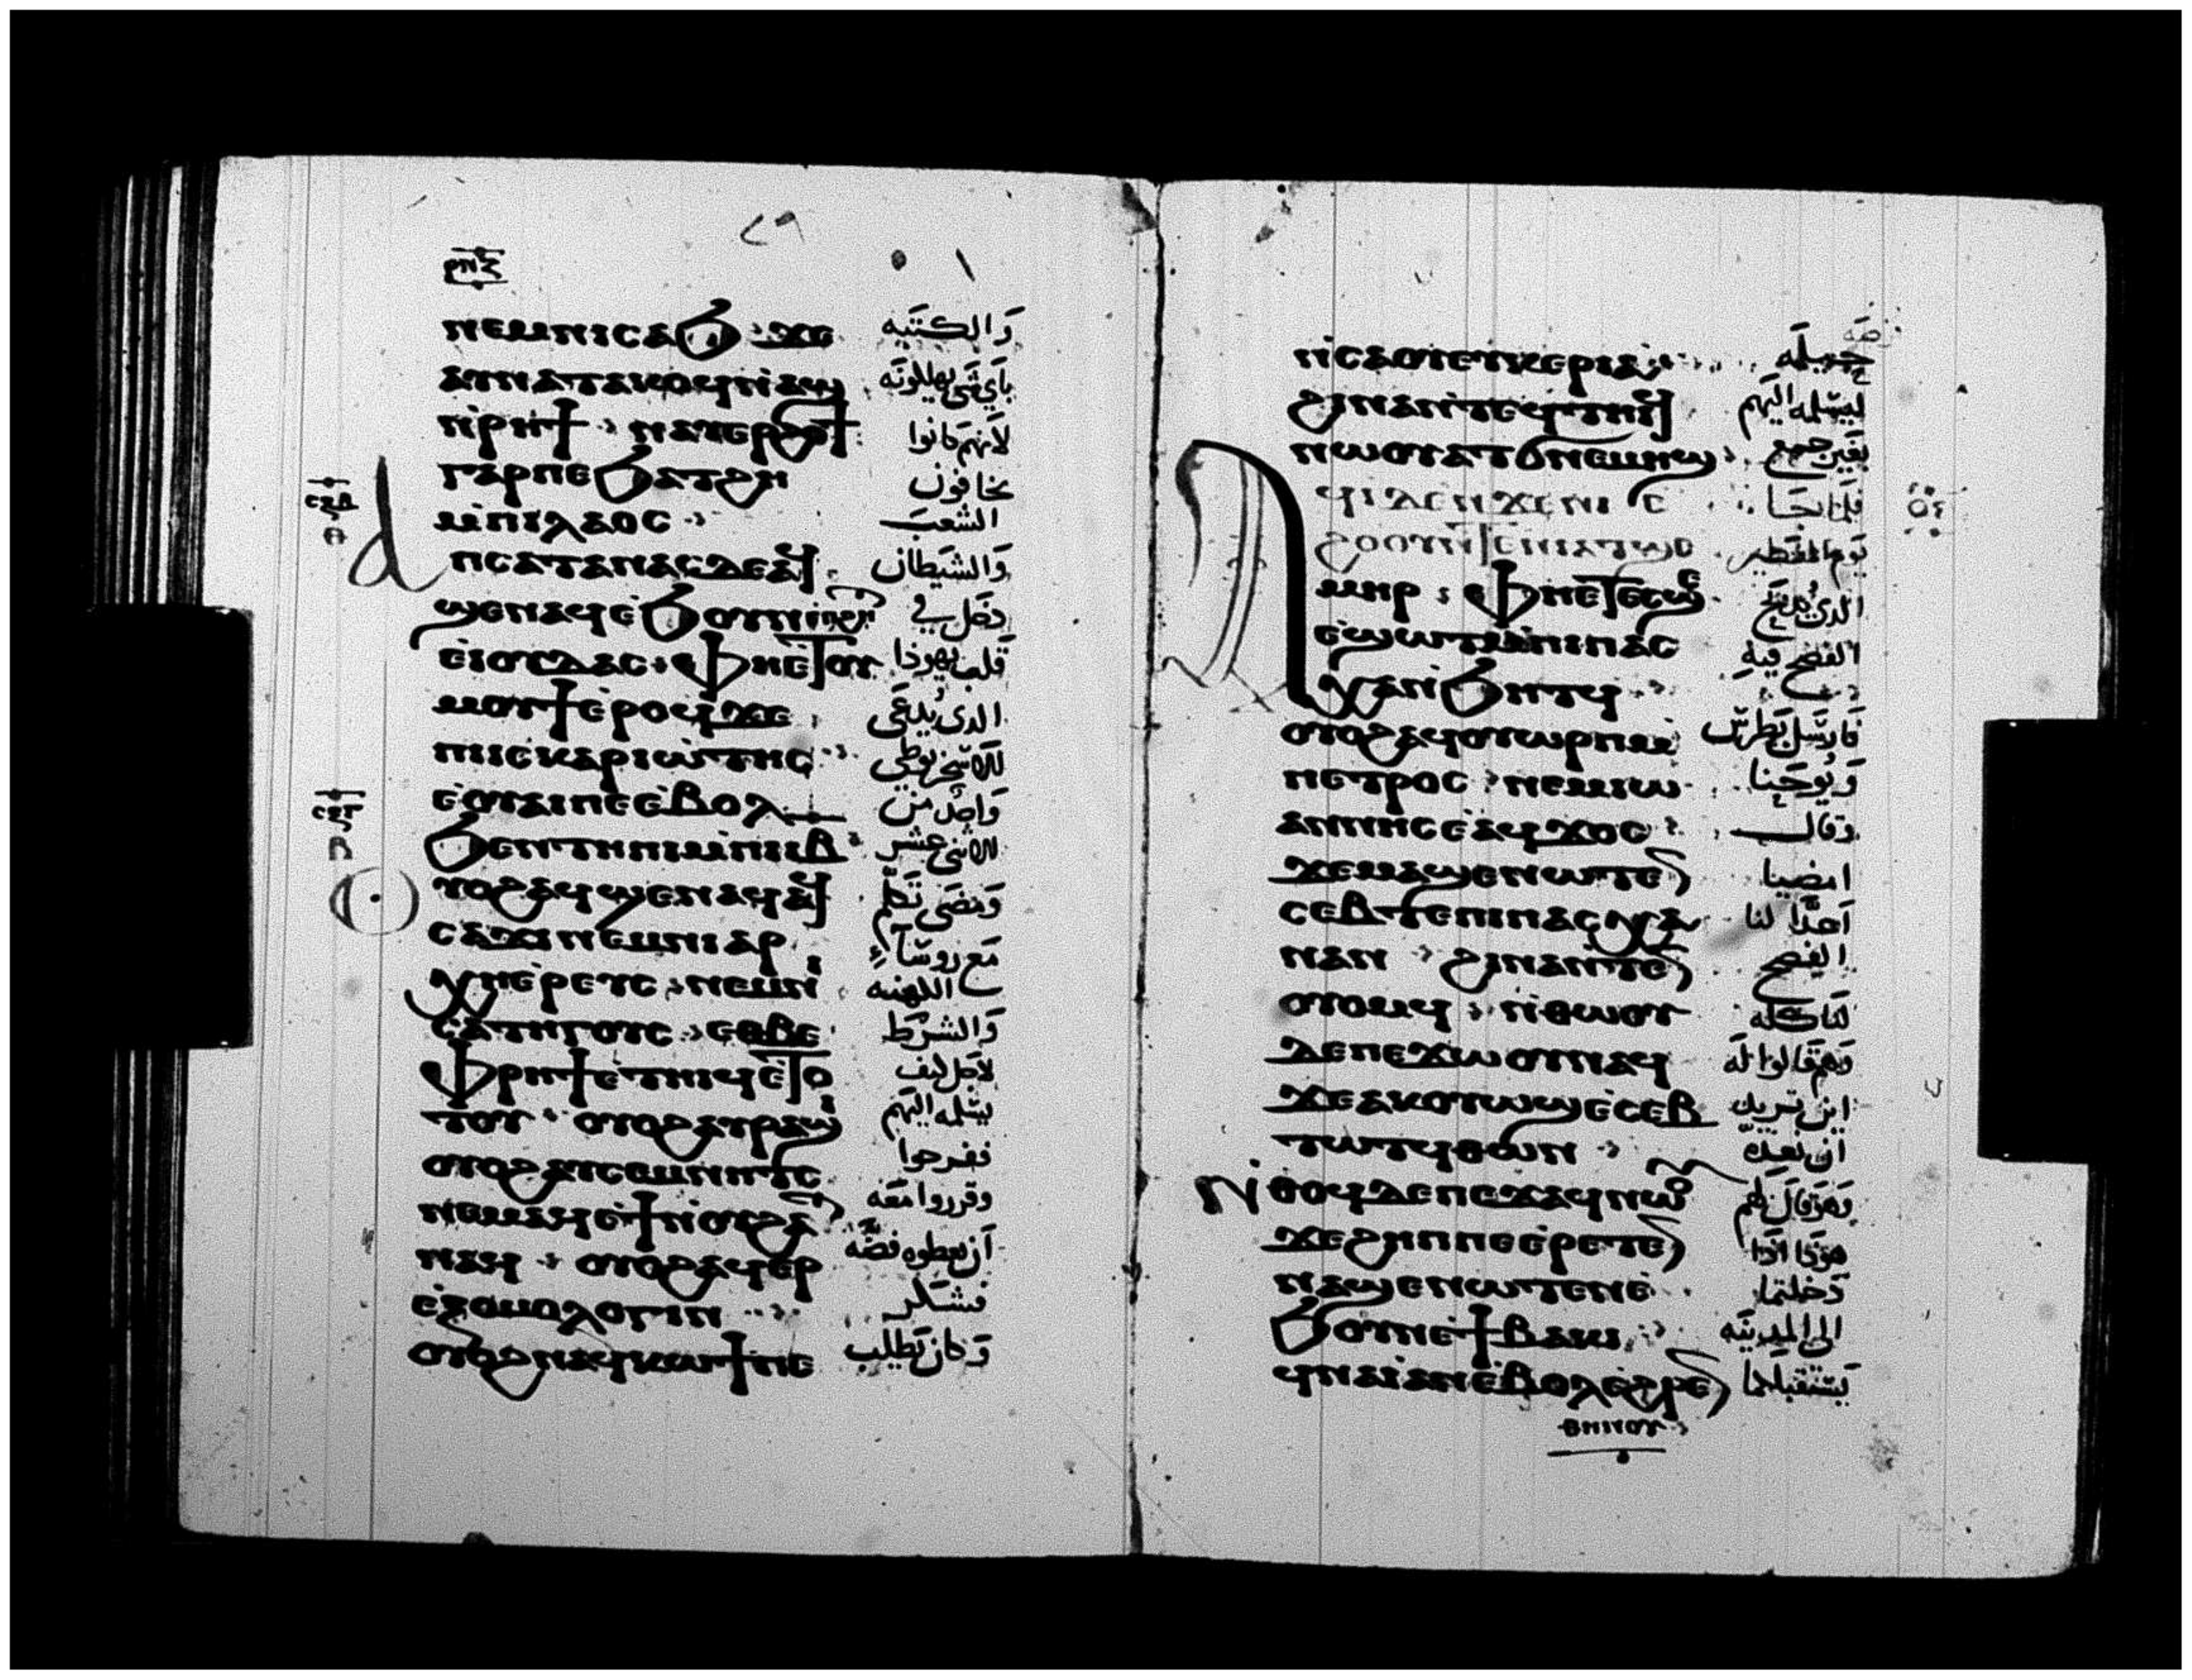 ⲣⲡⲝ
ⲛⲉⲙⲛⲓⲥⲁϧ ϫⲉ والكتبه
ⲁⲩⲛⲁⲧⲁⲕⲟϥⲛ̀ⲁϣ باي شي يهللونه
ⲛ̀ⲣⲏϯ ⲛⲁⲩⲉⲣϩⲟϯ لانهم كانوا
ⲅⲁⲣⲡⲉϧⲁⲧϩⲏ يخافون
ⲙ̀ⲡⲓⲗⲁⲟⲥ الشعب
ⲥⲝⲃ ⲁⲡⲥⲁⲧⲁⲛⲁⲥⲇⲉⲁϥ والشيطان
ϣⲉⲛⲁϥⲉ̀ϧⲟⲩⲛⲛ̀ϩⲏⲧ دخل في
ⲉ̀ⲓⲟⲩⲇⲁⲥ ⲫⲏⲉ̀ⲧⲟⲩ قلب يهوذا
ⲙⲟⲩϯⲉ̀ⲣⲟϥϫⲉ الدى يدعى
ⲡⲓⲓⲥⲕⲁⲣⲓⲱⲧⲏⲥ الاسخريوطي
ⲥⲝⲅ ⲉ̀ⲟⲩⲁⲓⲡⲉⲉ̀ⲃⲟⲗ واحد من
ϧⲉⲛⲧⲏⲡⲓⲙ̀ⲡⲓⲓⲃ الاثني عشر
ⲟⲩⲟϩⲁϥϣⲉⲛⲁϥⲁϥ ومضى تكلم
ⲥⲁϫⲓⲛⲉⲙⲛⲓⲁⲣ مع روسآء
ⲭⲏⲉ̀ⲣⲉⲩⲥ ⲛⲉⲙⲛⲓ الكهنه
ⲥⲁⲧⲏⲅⲟⲩⲥ ⲉⲑⲃⲉ والشرط
ⲫⲣⲏϯⲉ̀ⲧⲏⲓϥⲉ̀ⲧⲟ لاجل كيف
ⲧⲟⲩ ⲟⲩⲟϩⲁⲩⲣⲁϣⲓ يسلمه اليهم
ⲟⲩⲟϩⲁⲩⲥⲉⲙⲛⲏⲧⲥ ففرحوا
ⲛⲉⲙⲁϥⲉ̀ϯⲛ̀ⲟⲩϩⲁⲧ وقرروا معه
ⲛⲁϥ ⲟⲩⲟϩⲁϥⲉⲣ ان يعطوه فضه
ⲉ̀ⲝⲟⲙⲟⲗⲟⲅⲓⲛ فشكر
ⲟⲩⲟϩⲛⲁϥⲕⲱϯⲡⲉ وكان يطلب
ⲛ̀ⲥⲁⲟⲩⲉⲩⲕⲉⲣⲓⲁ
ϩⲓⲛⲁⲛ̀ⲧⲉϥⲧⲏⲓϥ ليسلمه اليهم
ⲛⲱⲟⲩⲁⲧϭⲛⲉⲙⲏϣ بغير جمع
ⲁϥⲓⲇⲉⲛϫⲉⲡⲓⲉ فلما جا
ϩⲟⲟⲩⲛ̀ⲧⲉⲛⲓⲁⲧϣⲉ يوم الفطير
ⲙⲏⲣ ⲫⲏⲉⲧⲉⲥϣⲉ الدى
ⲉ̀ϣⲱⲧⲙ̀ⲡⲓⲡⲁⲥ الفصح فيه
ⲭⲁⲛ̀ϧⲏⲧϥ
ⲟⲩⲟϩⲁϥⲟⲩⲱⲣⲡⲙ̀ فارسل بطرس
ⲡⲉⲧⲣⲟⲥ ⲛⲉⲙⲓⲱ ويوحنا
ⲁⲛⲛⲏⲥⲉ̀ⲁϥϫⲟⲥ وقال
ϫⲉⲙⲁϣⲉⲛⲱⲧⲉⲛ امضيا
ⲥⲉⲃⲧⲉⲡⲓⲡⲁⲥⲭⲁ اعدا لنا
ⲛⲁⲛ ϩⲓⲛⲁⲛ̀ⲧⲉⲛ الفصح
ⲟⲩⲟⲙϥ ⲛ̀ⲑⲱⲟⲩ لناكله
ⲇⲉⲡⲉϫⲱⲟⲩⲛⲁϥ وهم قالوا له
ϫⲉⲁⲕⲟⲩⲱϣⲉ̀ⲥⲉⲃ اين تريد
ⲧⲱⲧϥⲑⲱⲛ ان نعد
ⲛ̀ⲑⲟϥⲇⲉⲡⲉϫⲁϥⲛⲱⲟⲩ وهو قال لهم
ϫⲉϩⲏⲡⲡⲉⲉ̀ⲣⲉⲧⲉⲛ هودا اذا
ⲛⲁϣⲉⲛⲱⲧⲉⲛⲉ̀ دخلتما
ϧⲟⲩⲛⲉ̀ϯⲃⲁⲕⲓ الى المدينه
ϥⲛⲁⲓ̀ⲁⲛⲉ̀ⲃⲟⲗⲉ̀ϩⲣⲉⲛ يستقبلكما
ⲑⲏⲛⲟⲩ